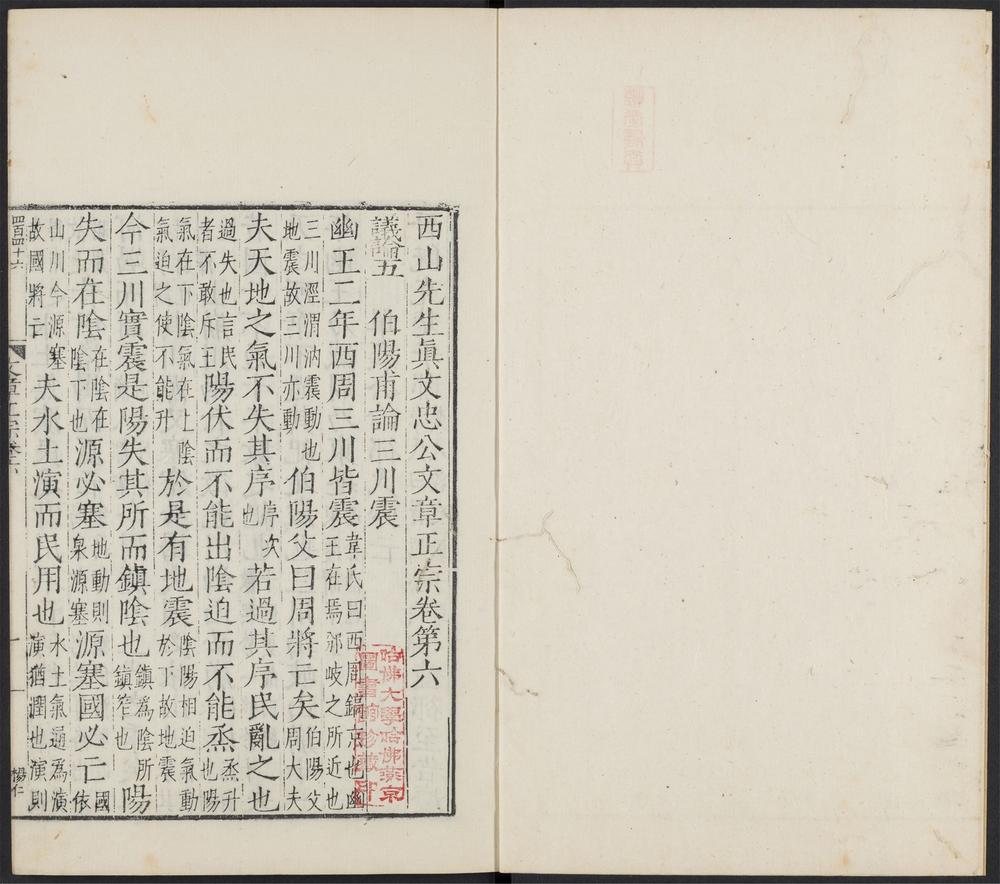 西山先生真文忠公文章正宗卷第六
議論五　伯陽甫論三川震
幽王二年西周三川皆震韋氏曰西周鎬京也幽王在焉邠岐之所近也
三川涇渭汭震動也地震故三川亦動伯陽父曰周將亡矣伯陽父周大夫
夫天地之氣不失其序序次也若過其序民亂之也
過失也言民者不敢斥王陽伏而不能出陰迫而不能烝烝升也陽
氣在下陰氣在上陰氣迫之使不能升於是有地震陰陽相迫氣動於下故地震
今三川實震是陽失其所而鎭陰也鎭為陰所鎭笮也陽
失而在陰在陰在陰下也源必塞地動則泉源塞源塞國必亡國依
山川今源塞故國將亡夫水土演而民用也水土氣通為演演猶潤也演則
文章正宗卷六
楊仁
哈佛大學哈佛燕京
圖書館珍藏印